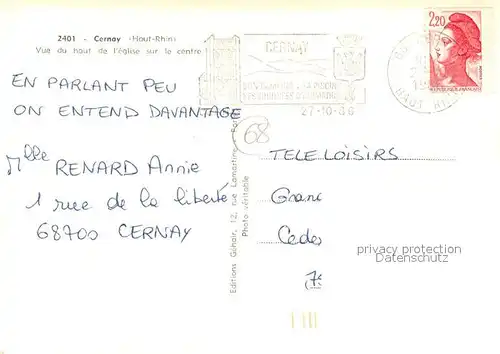 2401 - Cernay (Haut-Rhin)
Vue du haut de l'église sur le centre
EN PARLANT PEU
ON ENTEND DAVANTAGE
Mlle RENARD Annie
1 rue de la liberté
68700 CERNAY
Editions Géhair, 12, rue Lamartine
Photo véritable
CERNAY
27-10-86
HAUT RHIN
2,20
68
TELE LOISIRS
Gran
Cedes
75
privacy protection
Datenschutz